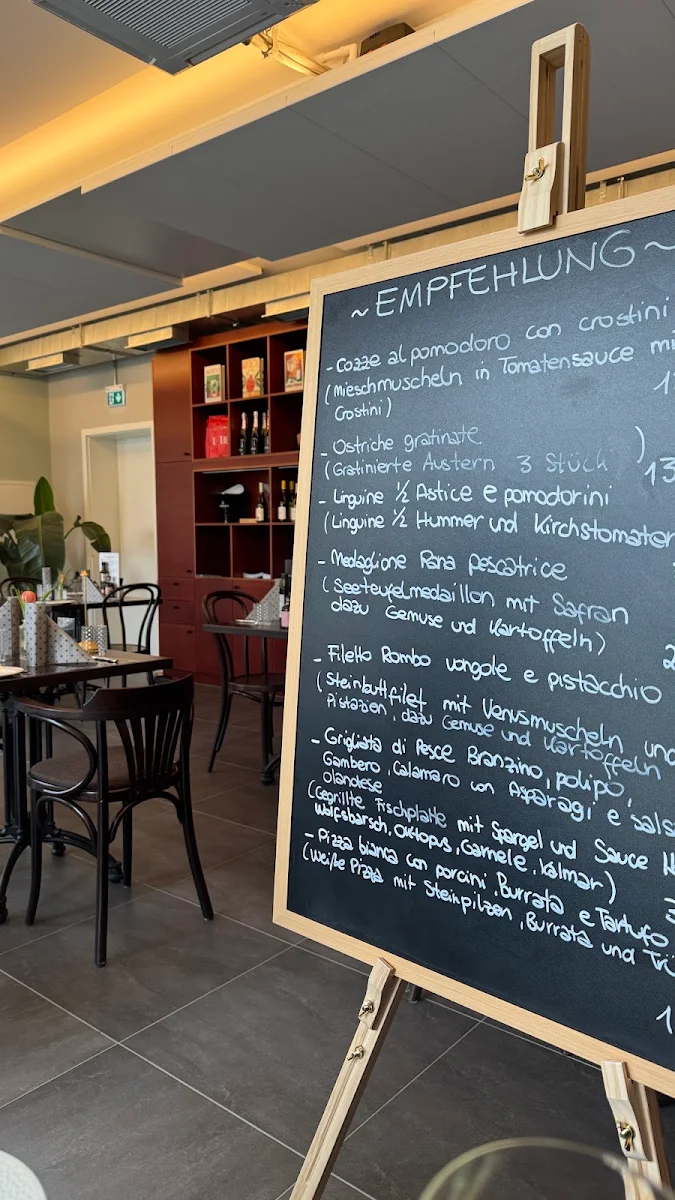 ~ EMPFEHLUNG ~
- Cozze al pomodoro con crostini
(Mieschmuscheln in Tomatensauce mi
Crostini)
1
- Ostriche gratinate
(Gratinierte Austern 3 Stück )
13
- Linguine ½ Astice e pomodorini
(Linguine ½ Hummer und Kirchstomaten
- Medaglione Rana pescatrice
(Seeteufelmedaillon mit Safran
dazu Gemuse und Kartoffeln)
2
- Filetto Rombo vongole e pistacchio
(Steinbuttfilet mit Venusmuscheln und
Pistazien, dazu Gemuse und Kartoffeln
- Grigliata di Pesce Branzino, polipo,
Gambero, Calamaro con Asparagi e sals
olandese
(Gegrillte Fischplatte mit Spargel und Sauce H
Wolfsbarsch, Oktopus, Garnele, Kalmar)
3
- Pizza bianca con porcini, Burrata e Tartufo
(Weiße Pizza mit Steinpilzen, Burrata und Trü
1